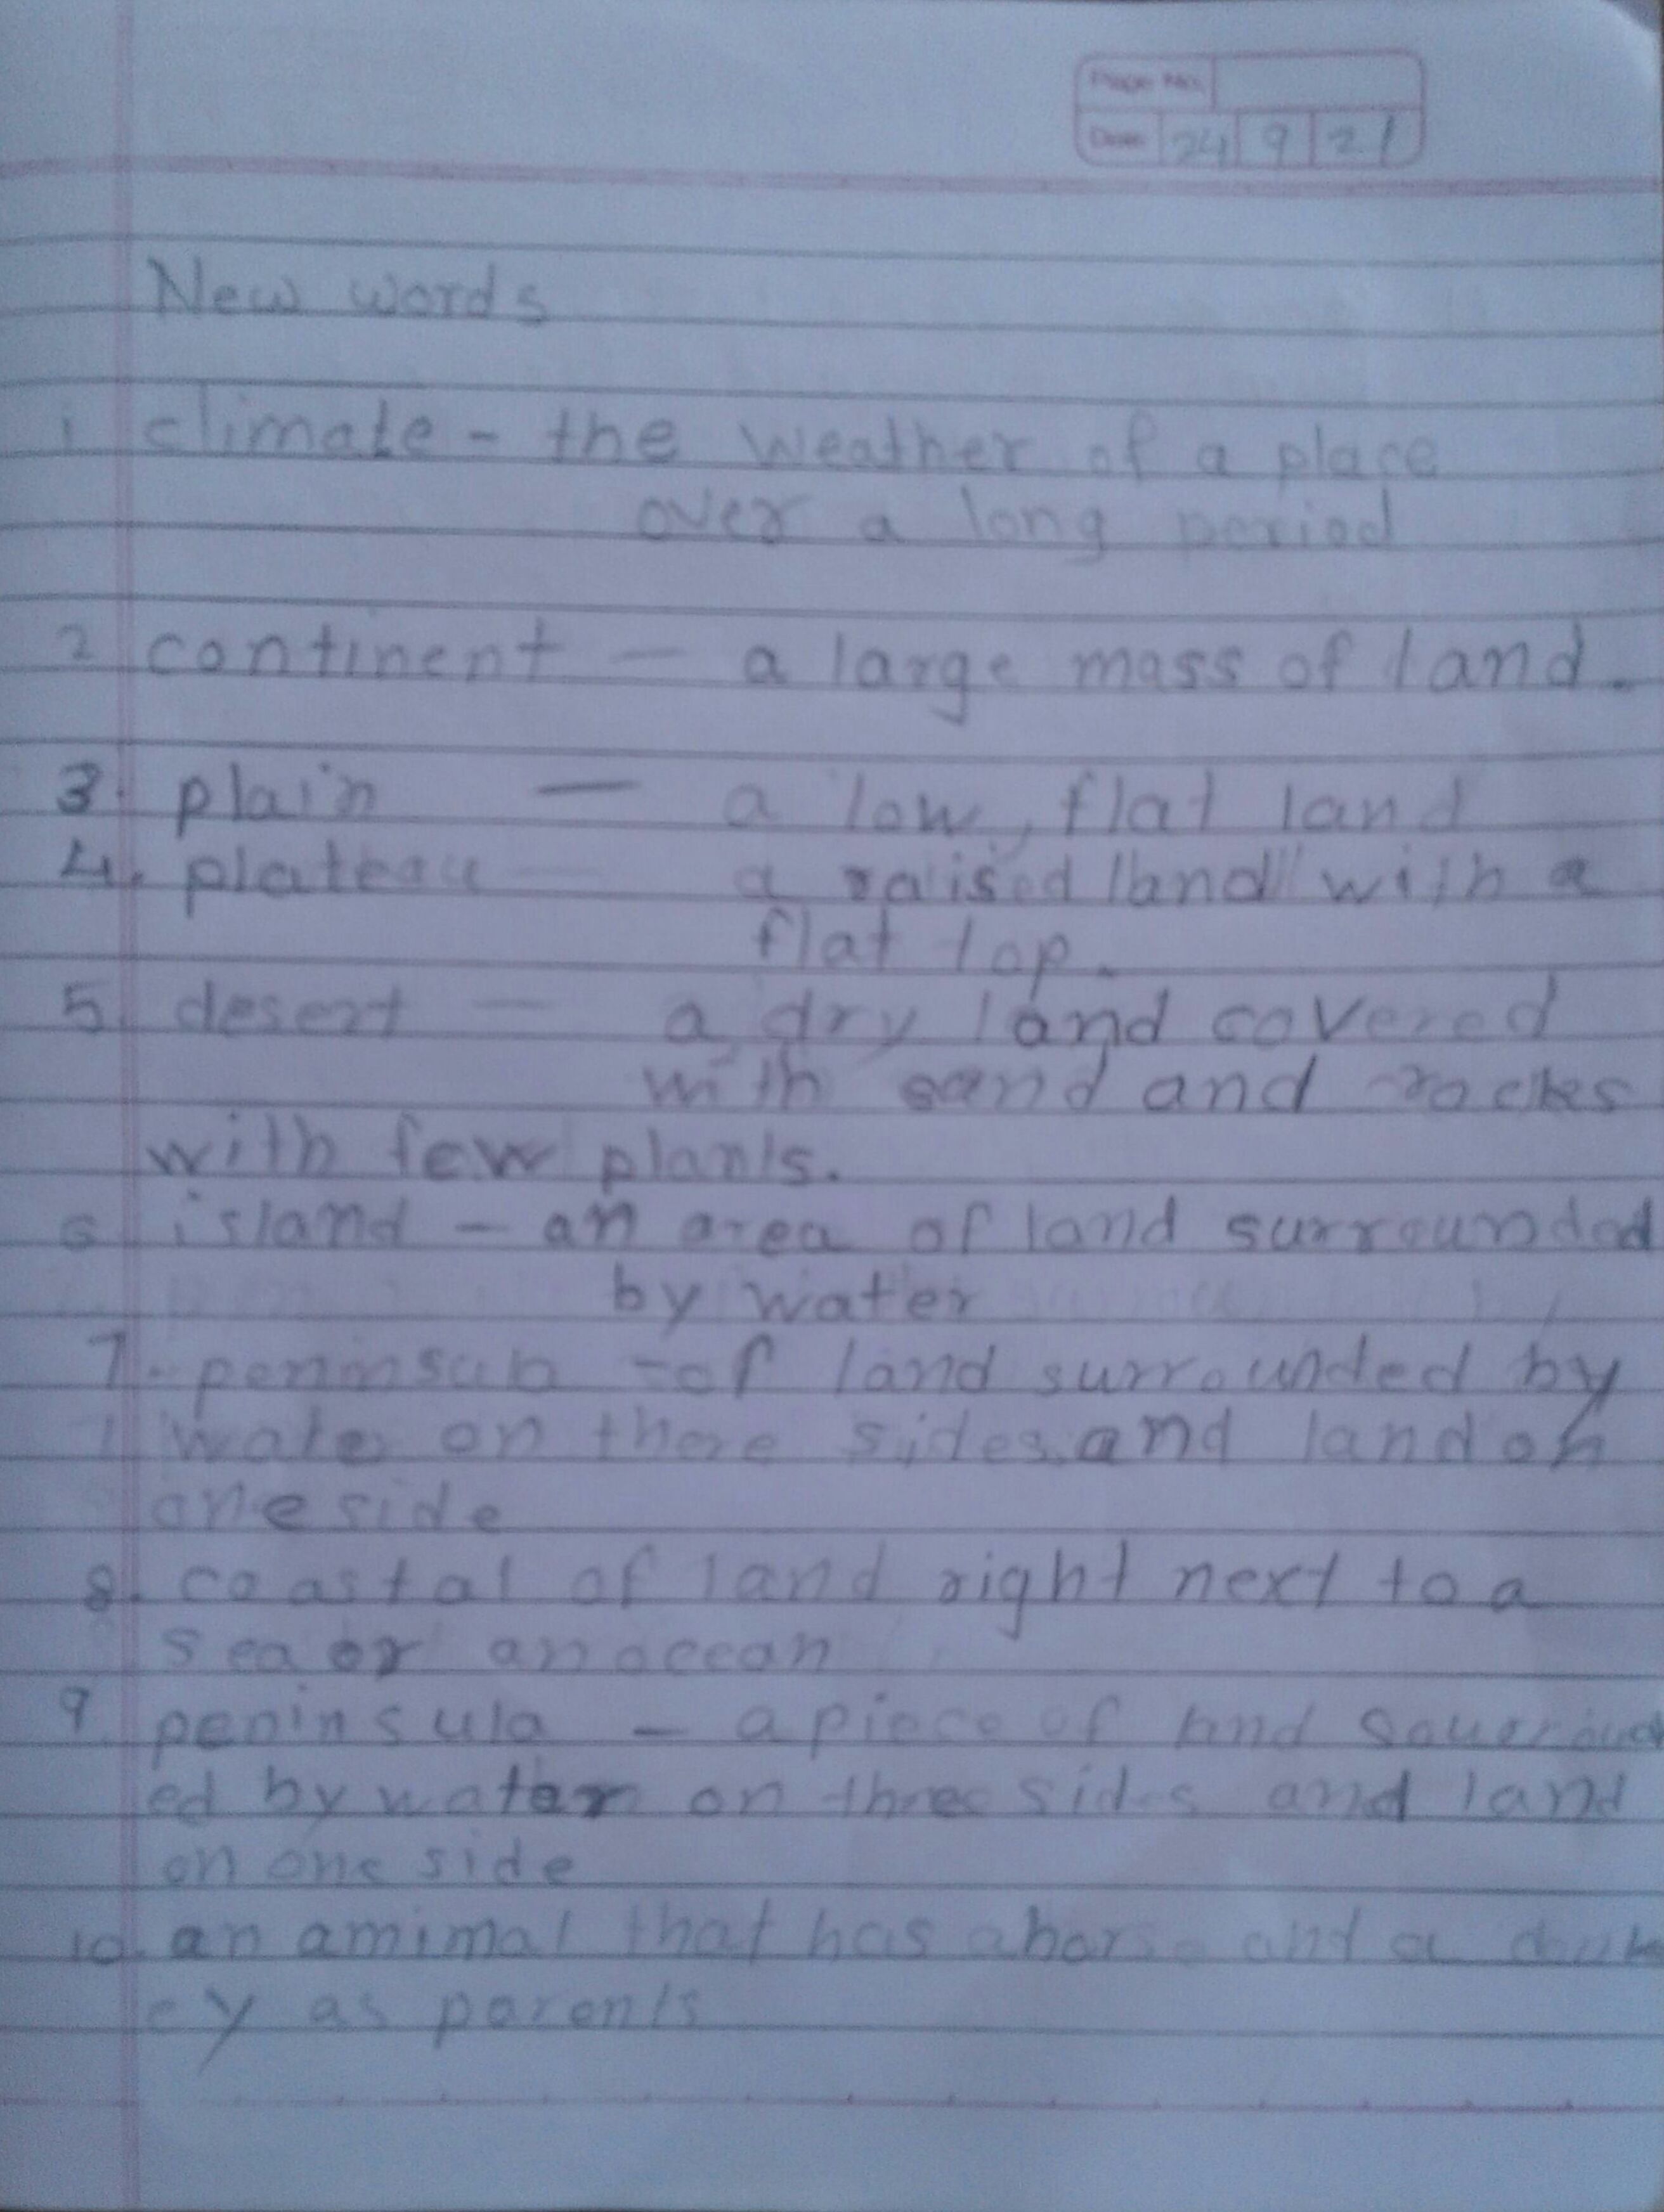 Page No.
Date 24 9 21
New words
1 climate - the weather of a place
over a long period
2 continent - a large mass of land.
3. plain - a low, flat land
4. plateau a raised land with a
flat top.
5. desert - a dry land covered
with sand and rocks
with few plants.
6 island - an area of land surrounded
by water
7. - of land surrounded by
on there sides and land on
one side
8. coastal of land right next to a
sea or an ocean
9. peninsula - a piece of
ed by water on three sides and land
on one side
10. an amimal that has a horse and a
ey as parents